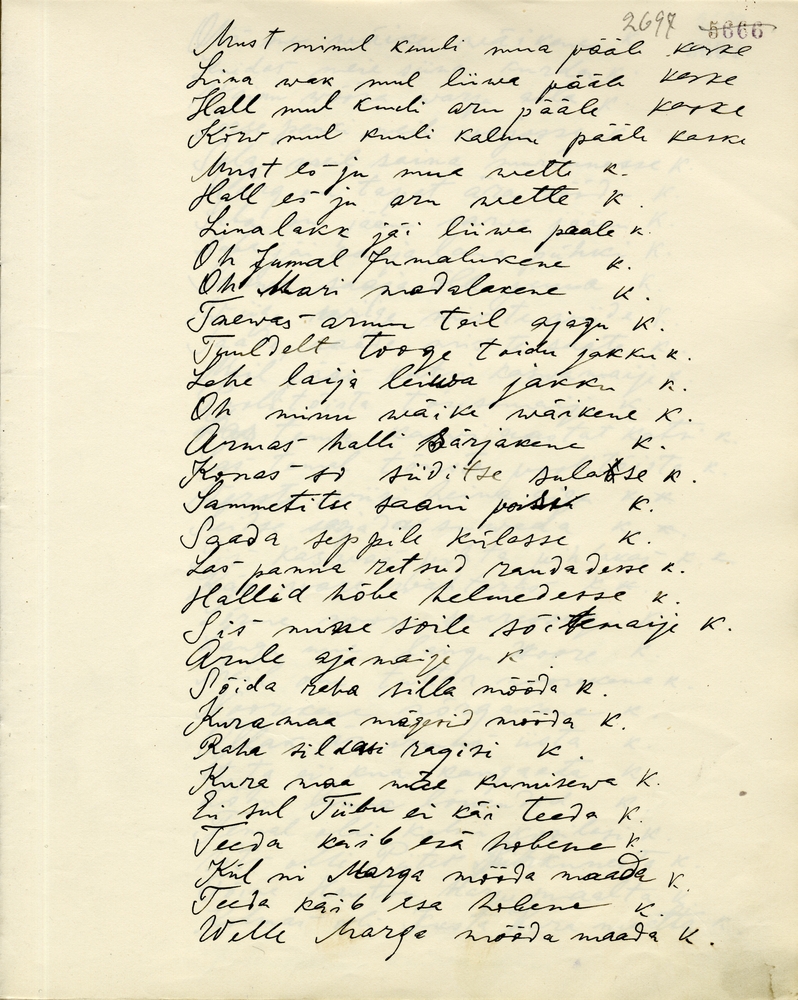 2697 5666
Must minul kuuli mua pääle kaske
Lina wak mul liiwa pääle kaske
Hall mul kuuli aru pääle kaske
Kõrw mul kuuli kalmu pääle kaske
Must es ju mua wette k.
Hall es ju aru wette k.
Linalakk jäi liiwa paale k.
Oh Jumal Jumalukene k.
Oh Mari madalakene k.
Taewas armu teil ajagu k.
Tuuldelt tooge toidu jakku k.
Lehe laija leiwa jakku k.
Oh minu wäike wäikene k.
Armas halli härjakene k.
Konas so siiditse sulatse k.
Sammetitse saani k.
Saada seppile külasse k.
Las panna ratsud raudadesse k.
Hallid hõbe helmedesse k.
Sis mine sõile sõitemaije k.
Arule ajamaije k.
Sõida raha silla mööda k.
Kuramaa mägesid mööda k.
Raha sildasi ragisi k.
Kura maa mäe kumisewa k.
Ei sul Tiibu ei käi teeda k.
Teeda käib esä hobene k.
Kül ni Marga mööda maada k.
Teeda käib esa hobene k.
Welle Marga mööda maada k.